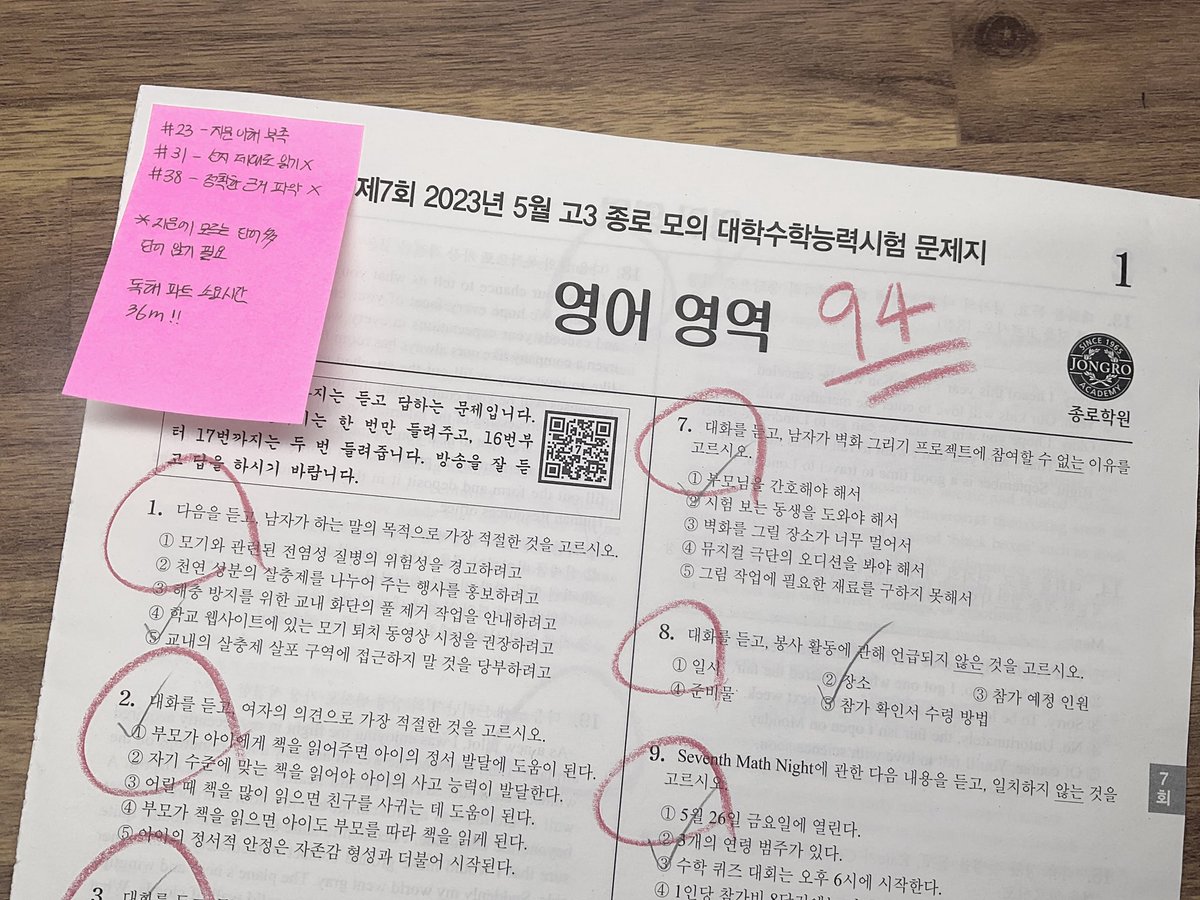 #23 - 지문 이해 부족
#31 - 선지 제대로 읽기 X
#38 - 정확한 근거 파악 X
* 지문에 모르는 단어 多
단어 암기 필요
독해 파트 소요시간
36m!!
제7회 2023년 5월 고3 종로 모의 대학수학능력시험 문제지
1
영어 영역
94
SINCE 1965
JONGRO
ACADEMY
종로학원
지는 듣고 답하는 문제입니다.
는 한 번만 들려주고, 16번부
터 17번까지는 두 번 들려줍니다. 방송을 잘 듣
고 답을 하시기 바랍니다.
1. 다음을 듣고, 남자가 하는 말의 목적으로 가장 적절한 것을 고르시오.
① 모기와 관련된 전염성 질병의 위험성을 경고하려고
② 천연 성분의 살충제를 나누어 주는 행사를 홍보하려고
③ 해충 방지를 위한 교내 화단의 풀 제거 작업을 안내하려고
④ 학교 웹사이트에 있는 모기 퇴치 동영상 시청을 권장하려고
⑤ 교내의 살충제 살포 구역에 접근하지 말 것을 당부하려고
2. 대화를 듣고, 여자의 의견으로 가장 적절한 것을 고르시오.
① 부모가 아이에게 책을 읽어주면 아이의 정서 발달에 도움이 된다.
② 자기 수준에 맞는 책을 읽어야 아이의 사고 능력이 발달한다.
③ 어릴 때 책을 많이 읽으면 친구를 사귀는 데 도움이 된다.
④ 부모가 책을 읽으면 아이도 부모를 따라 책을 읽게 된다.
⑤ 아이의 정서적 안정은 자존감 형성과 더불어 시작된다.
3. 대화를 듣고
7. 대화를 듣고, 남자가 벽화 그리기 프로젝트에 참여할 수 없는 이유를
고르시오.
① 부모님을 간호해야 해서
② 시험 보는 동생을 도와야 해서
③ 벽화를 그릴 장소가 너무 멀어서
④ 뮤지컬 극단의 오디션을 봐야 해서
⑤ 그림 작업에 필요한 재료를 구하지 못해서
8. 대화를 듣고, 봉사 활동에 관해 언급되지 않은 것을 고르시오.
① 일시 ② 장소 ③ 참가 예정 인원
④ 준비물 ⑤ 참가 확인서 수령 방법
9. Seventh Math Night에 관한 다음 내용을 듣고, 일치하지 않는 것을
고르시오.
① 5월 26일 금요일에 열린다.
② 3개의 연령 범주가 있다.
③ 수학 퀴즈 대회는 오후 6시에 시작한다.
④ 1인당 참가비 8달러에는
7
회